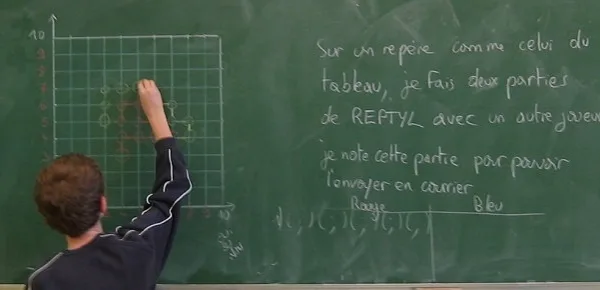 10
9
8
7
6
5
Sur un repère comme celui du
tableau, je fais deux parties
de REPTYL avec un autre joueur
je note cette partie pour pouvoir
l'envoyer en courrier
Rouge Bleu
1 ( ; ) ( ; ) ( ; ) ( ; ) ( , )
10